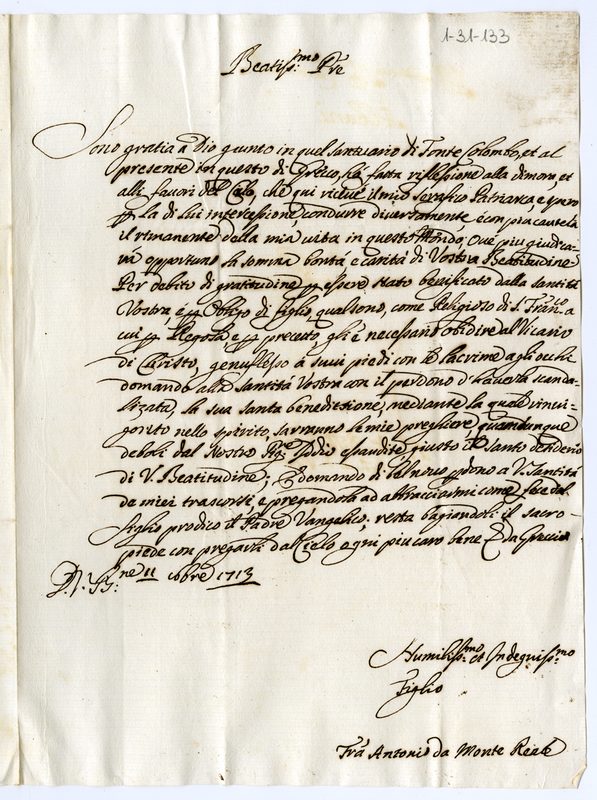 1-31-133
Beatiss:mo Pre
Sono gratia a Dio giunto in quel santuario di Fonte Colombo, et al
presente in questo di Greccio, hà fatta riflessione alla dimora, et
alli favori del Cielo, che qui riceué il mio serafico Patriarca e spero
p la di lui intercessione, condurre diversamente e con piu cautela
il rimanente della mia vita in questo Mondo, oue piu giudica-
rà opportuno la somma bontà e carità di Vostra Beatitudine.
Per debito di gratitudine p essere stato beneficato dalla santità
Vostra, é p obligo di figlio, qual sono, come Religioso di S. Franco a
cui p Regola, e p precetto, gli è necessario obidire al Vicario
di Christo, genuflesso à suoi piedi con le lacrime agli occhi
domando alla santità Vostra con il perdono d'haverla scanda-
lizata, la sua santa benedittione, mediante la quale rinvi-
gorito nello spirito, saranno le mie preghiere, quantunque
deboli dal Nostro Iddio esaudite, giusto il santo desiderio
di V. Beatitudine; domando di bel nuovo pdono a V. Santità
de miei trascorsi, e pregandola ad abbracciarmi come fece dal
figlio prodico il Padre Vangelico: resta bagiandoli il sacro
piede con pregarli dal Cielo ogni piu caro bene da Greccio
D. V. Sti:ne 11 obre 1713
Humiliss:mo et Indegniss:mo
Figlio
Frà Antonio da Monte Reale